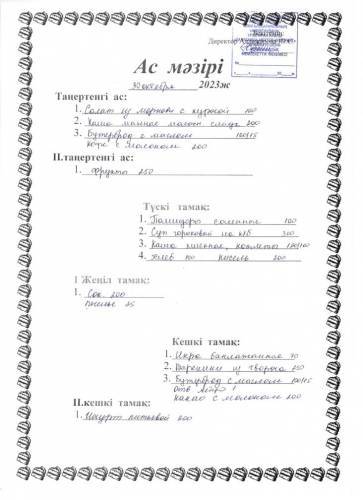 Директор
Ас мәзірі
30 октября 2023ж
Таңертенгі ас:
1. Салат из моркови с курагой 100
2. Каша манная молоч слад 200
3. Бутерброд с маслом
кофе с молоком 200
II.таңертенгі ас:
1. фрукты 250
Түскі тамақ:
1. Помидоры соленые 100
2. Суп гороховый на к/б 200
3. Каша пшенная, котлеты
4. Хлеб кисель 200
I Жеңіл тамақ:
1. Сок 200
печенье 25
Кешкі тамақ:
1. Икра баклажанная 70
2. Вареники из творога 250
3. Бутерброд с маслом
отв яйцо 1
какао с молоком 200
II.кешкі тамақ:
1. Йогурт питьевой 200